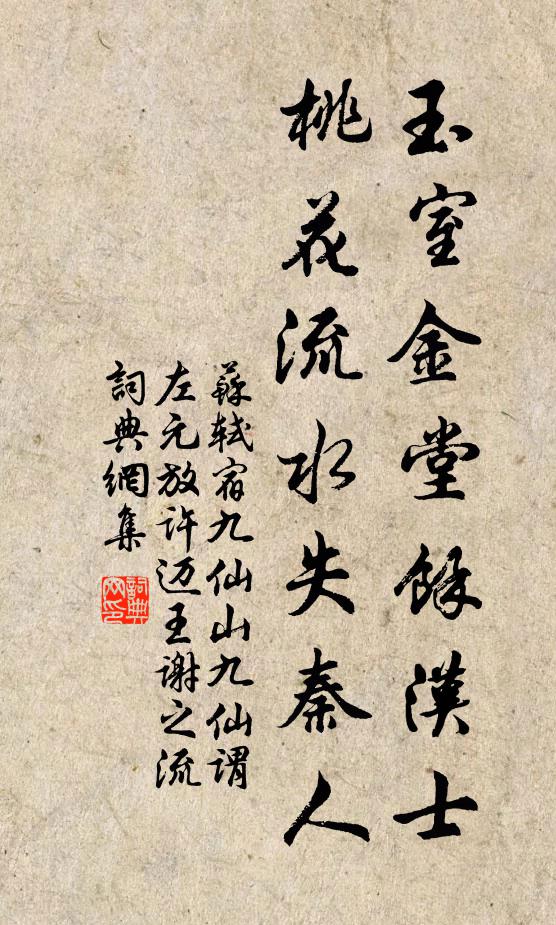 玉室金堂餘漢士
桃花流水失秦人
蘇軾宿九仙山九仙謂
左元放許迈王謝之流
詞典網集
詞典網印